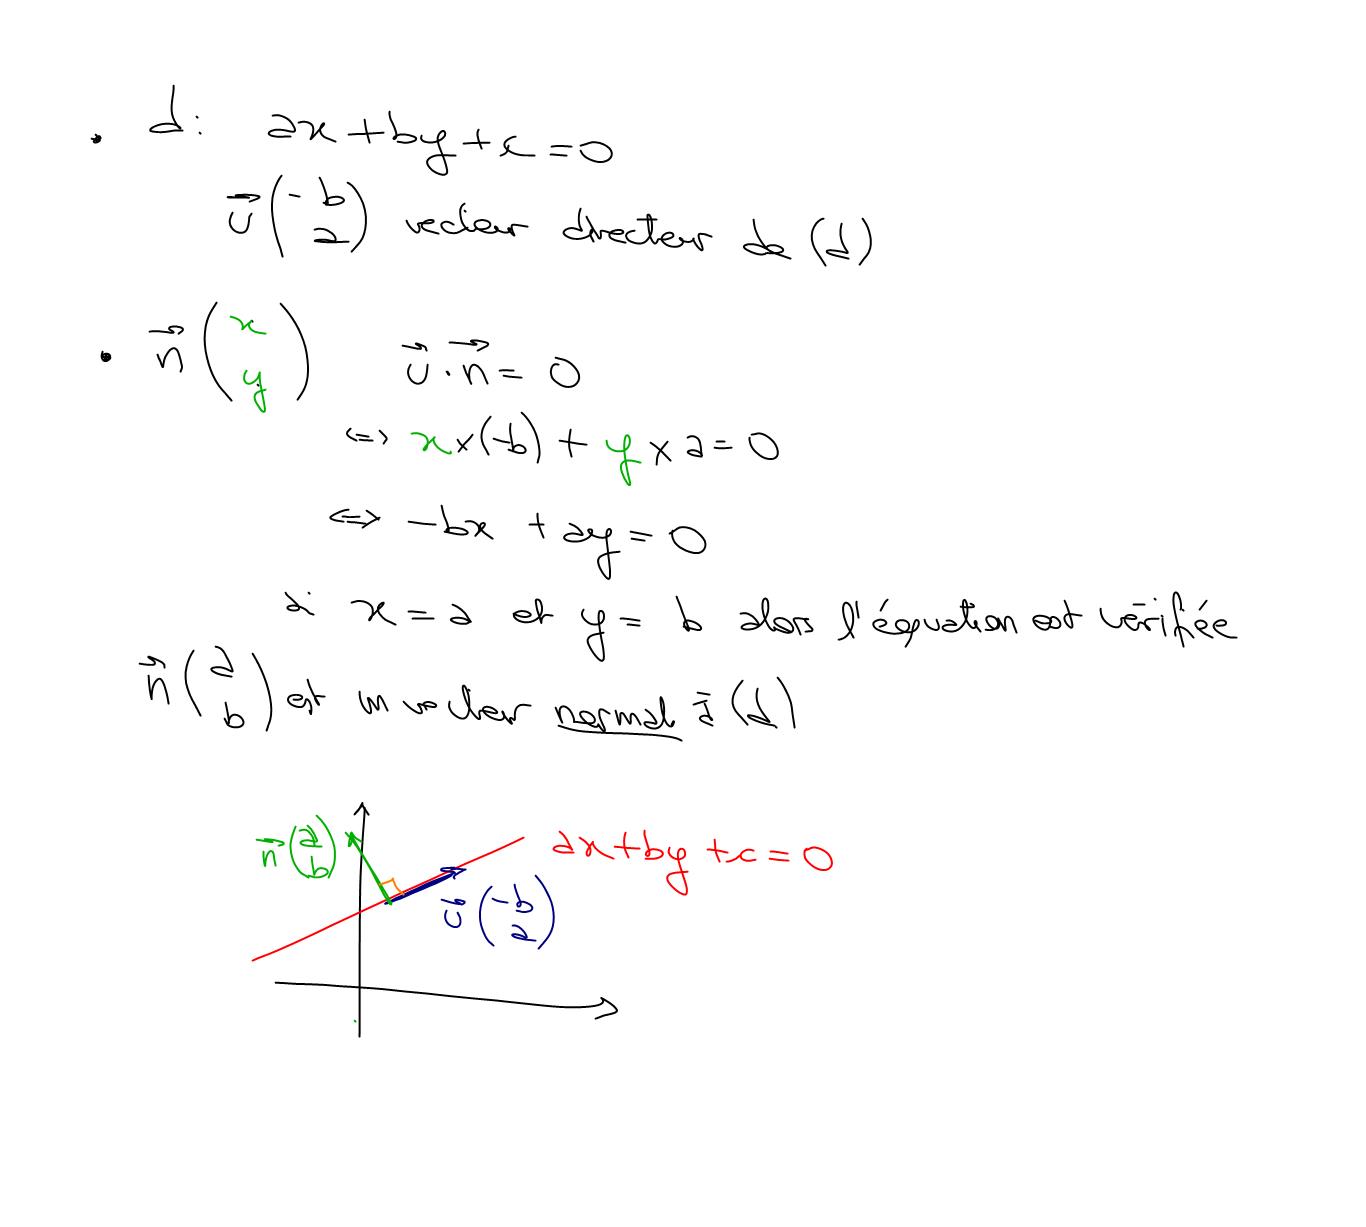 • d: ax + by + c = 0
u⃗ (-b a) vecteur directeur de (d)
• n⃗ (x y) u⃗ · n⃗ = 0
<=> x × (-b) + y × a = 0
<=> -bx + ay = 0
si x = a et y = b alors l'équation est vérifiée
n⃗ (a b) est un vecteur normal à (d)
n⃗ (a b) ax + by + c = 0
u⃗ (-b a)